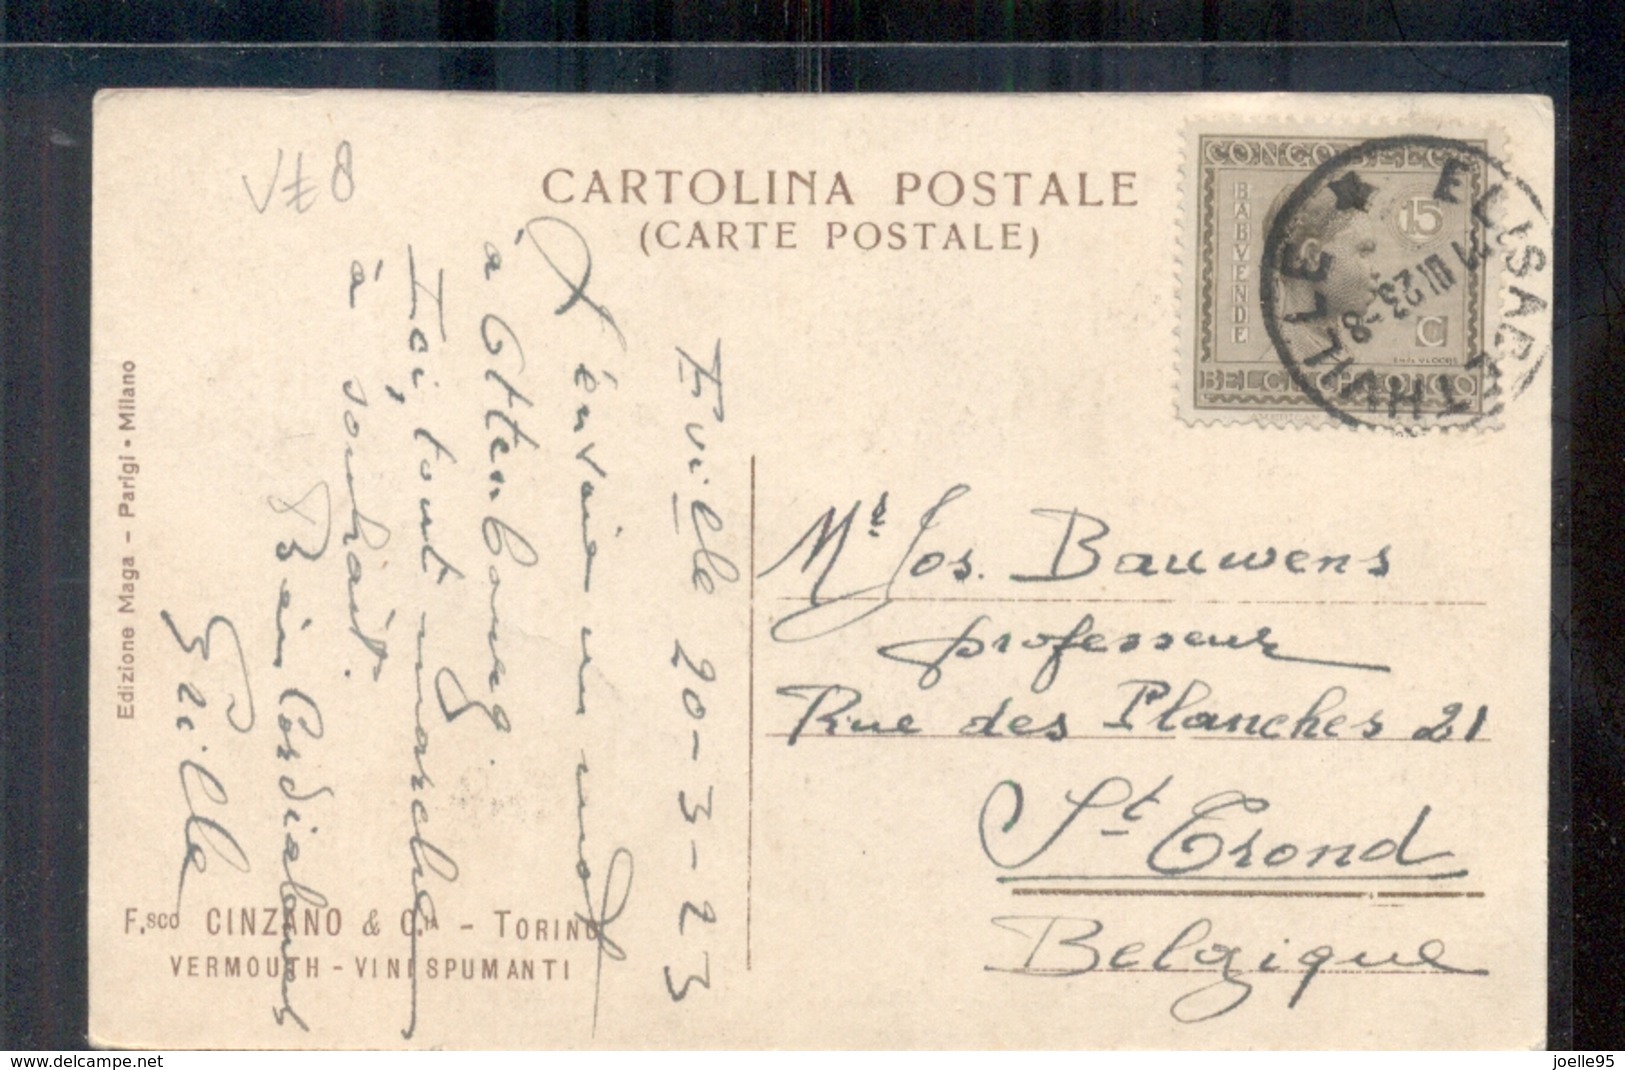 V≠8
CARTOLINA POSTALE
(CARTE POSTALE)
CONGO BELGE
BABVENDE
15
C
EMIL VLOORS
BELGISCH CONGO
AMERICAN
ELISABETHVILLE
III 23
Eville 20-3-23
J'envoie un mot
à Ottenbourg.
Ici, tout marche
à souhait.
Bien Cordialement
Edizione Maga - Parigi • Milano
F.sco CINZANO & C.ia - TORINO
VERMOUTH - VINI SPUMANTI
Mr Jos. Bauwens
professeur
Rue des Planches 21
St Trond
Belgique
joelle95
https://www.delcampe.net